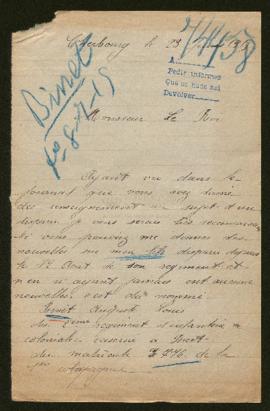 Cherbourg le 23
7/4/58
A
Pedir informes
Que se hade
Devolver
Binet
8-7-15
Monsieur Le Roi
Ayant vu dans le
journal que vous avez donné
des renseignements sujet d'un
disparu je vous serais très reconnaissant
si vous pouviez me donner des
nouvelles de mon fils disparu depuis
le 22 Aout de son regiment et
n'en ayant jamais eut aucune
nouvelles c'est du nommé
Binet Auguste Louis
du regiment d'infanterie
coloniale caserné a Brest
du matricule de la
compagnie